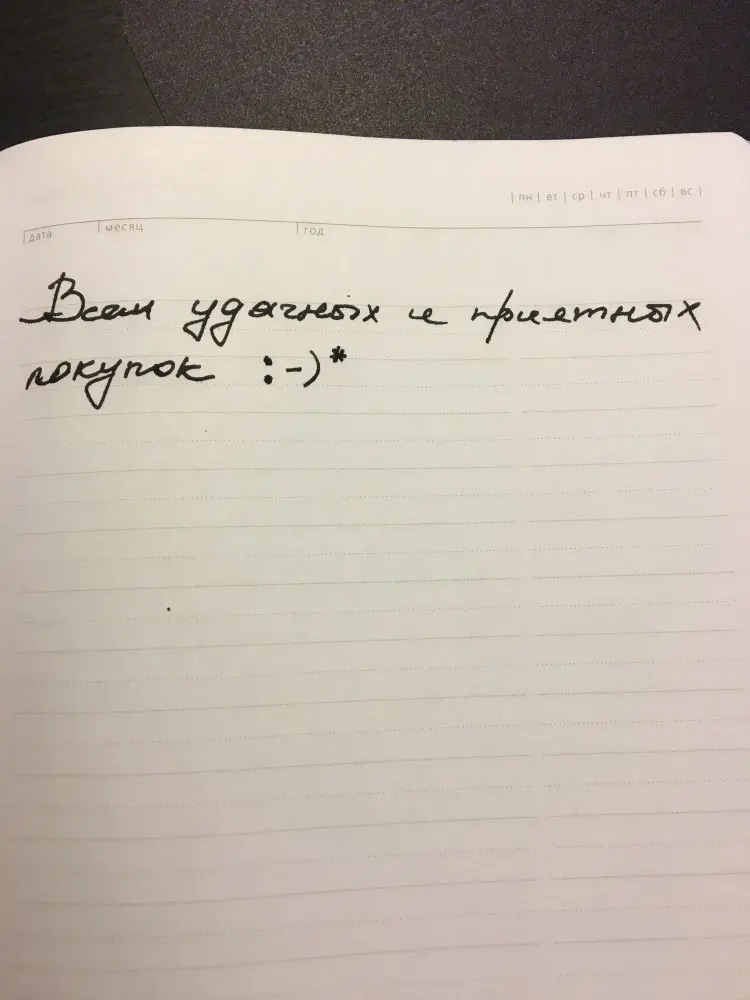 | пн | вт | ср | чт | пт | сб | вс |
дата месяц год
Всем удачных и приятных
покупок :-)*